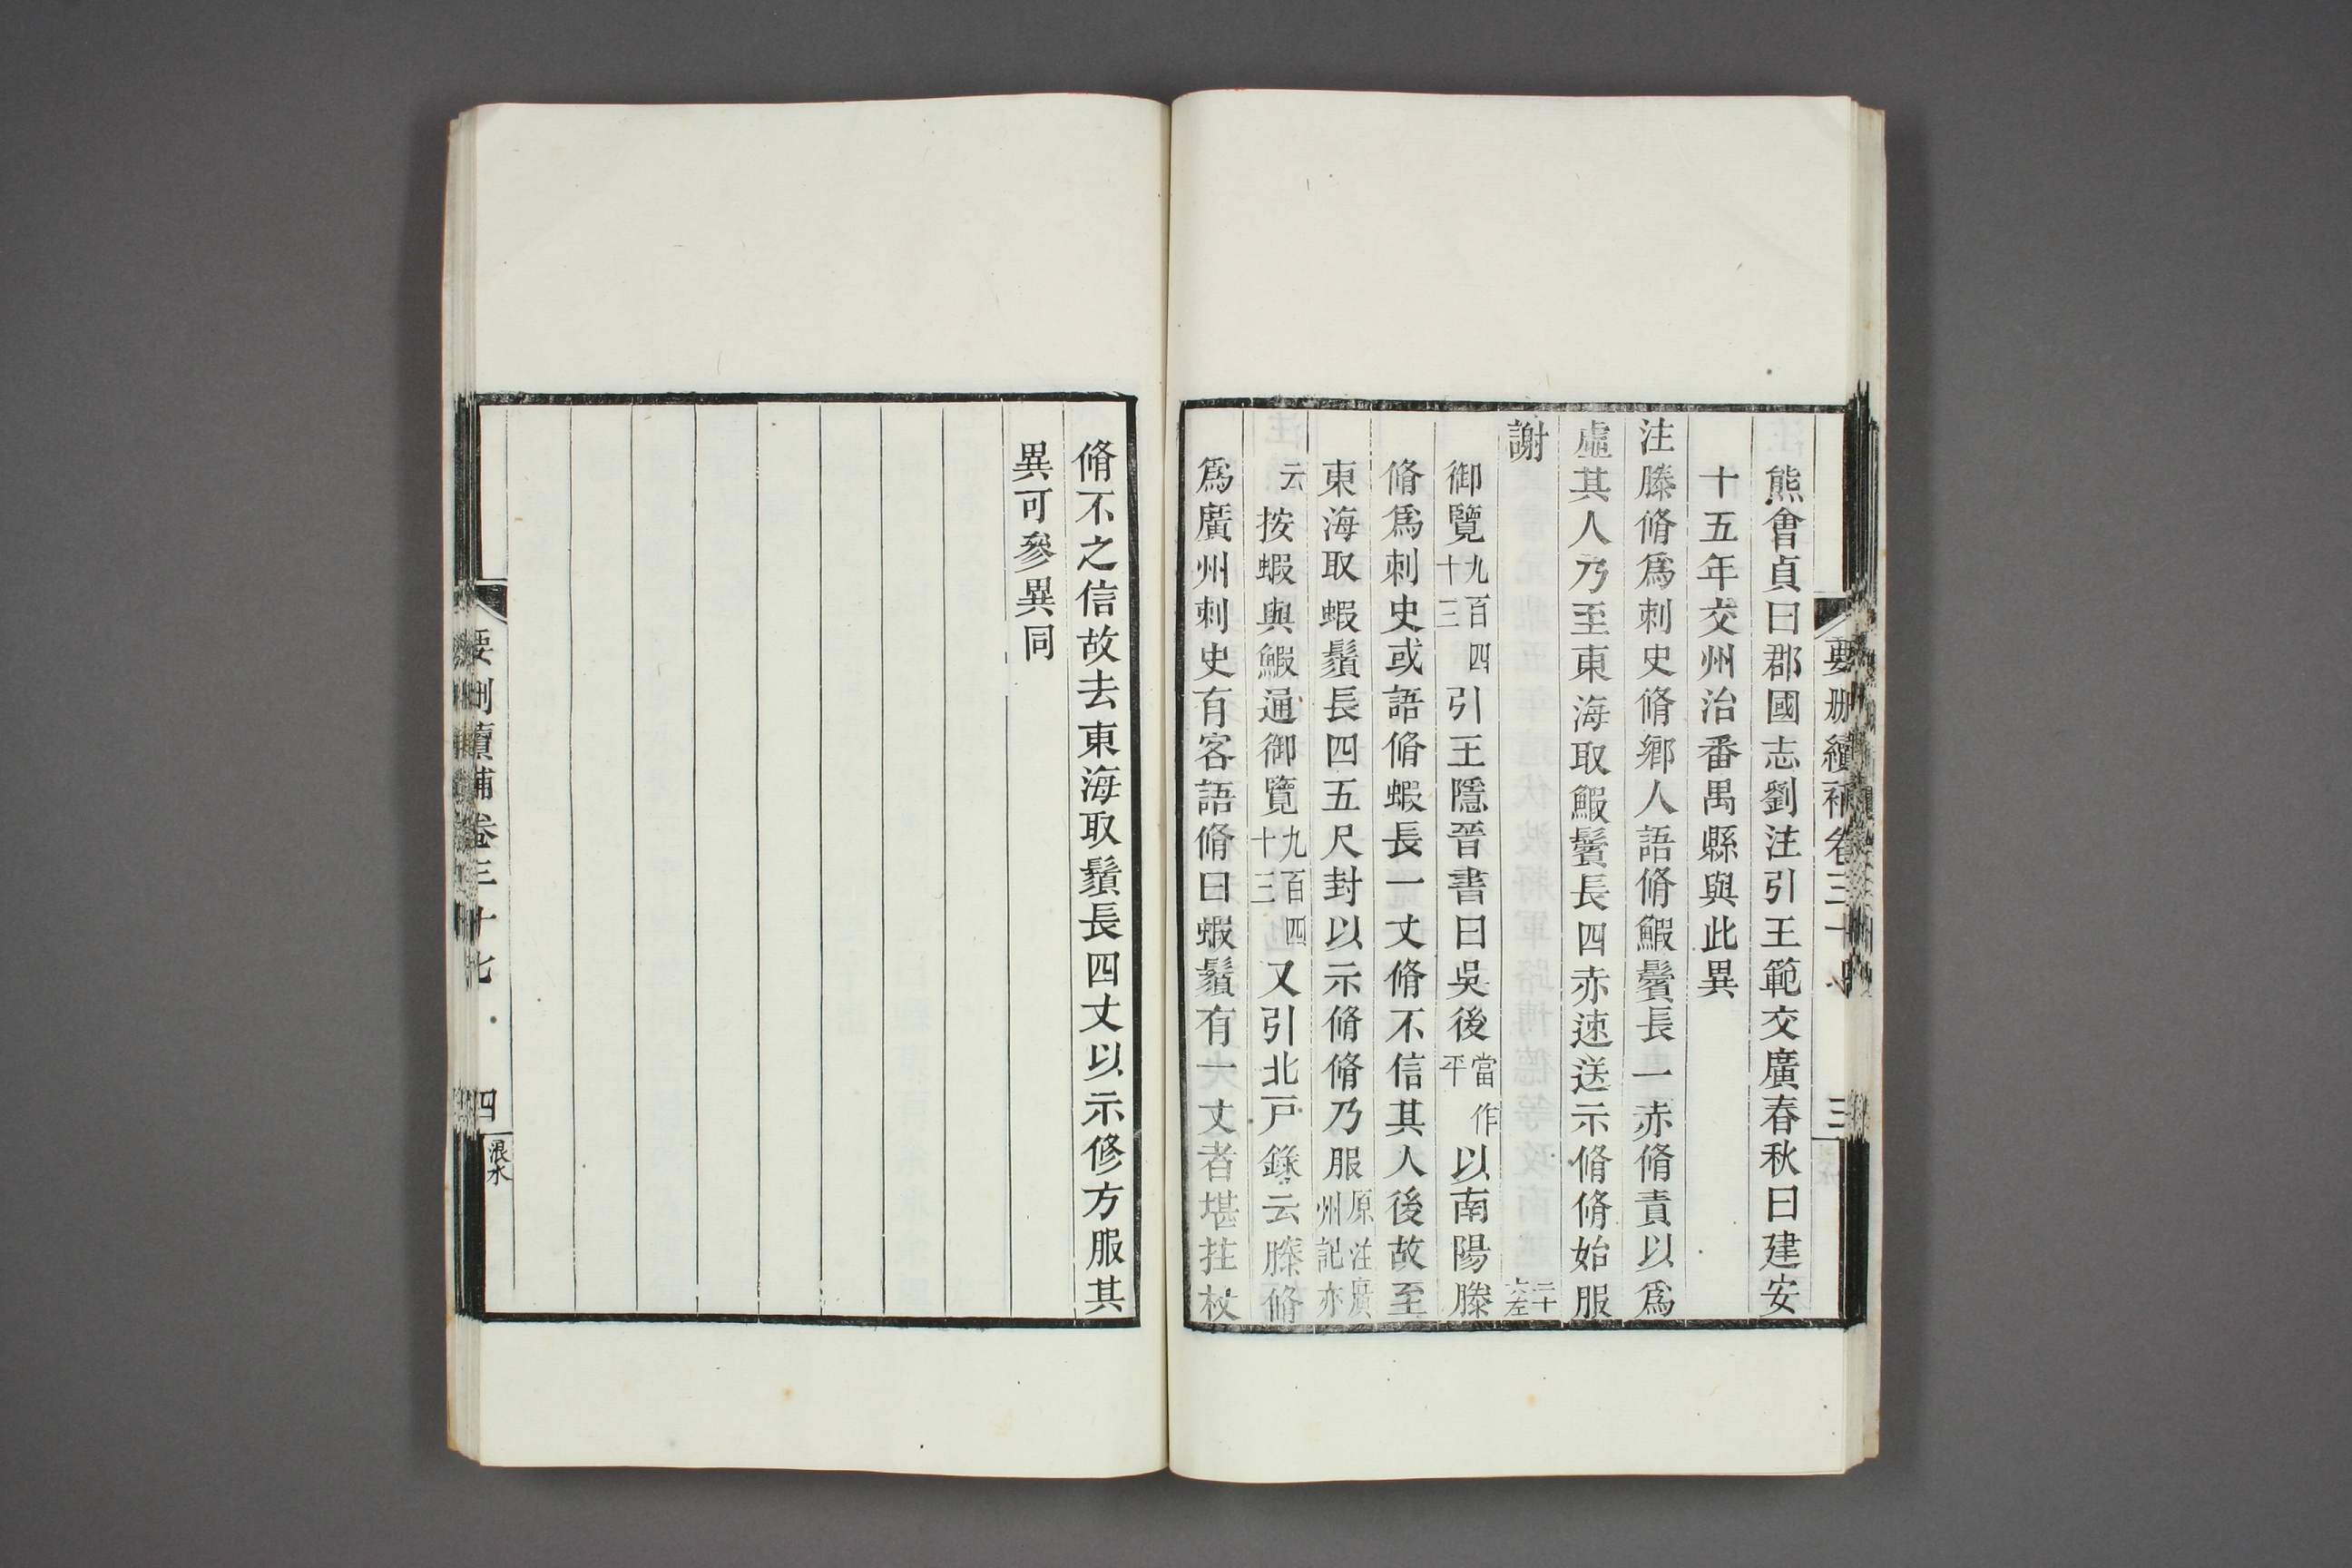 要刪續補卷三十七 三
熊會貞曰郡國志劉注引王範交廣春秋曰建安
十五年交州治番禺縣與此異
注滕脩爲刺史脩鄉人語脩鰕鬚長一赤脩責以爲
虛其人乃至東海取鰕鬚長四赤速送示脩脩始服
謝 二十六左
御覽九百四十三引王隱晉書曰吳後當作平以南陽滕
脩爲刺史或語脩蝦長一丈脩不信其人後故至
東海取蝦鬚長四五尺封以示脩脩乃服原注廣州記亦
云按蝦與鰕通御覽九百四十三又引北戸錄云滕脩
爲廣州刺史有客語脩曰蝦鬚有一丈者堪拄杖
脩不之信故去東海取鬚長四丈以示修方服其
異可參異同
要刪續補卷三十七 四 浪水